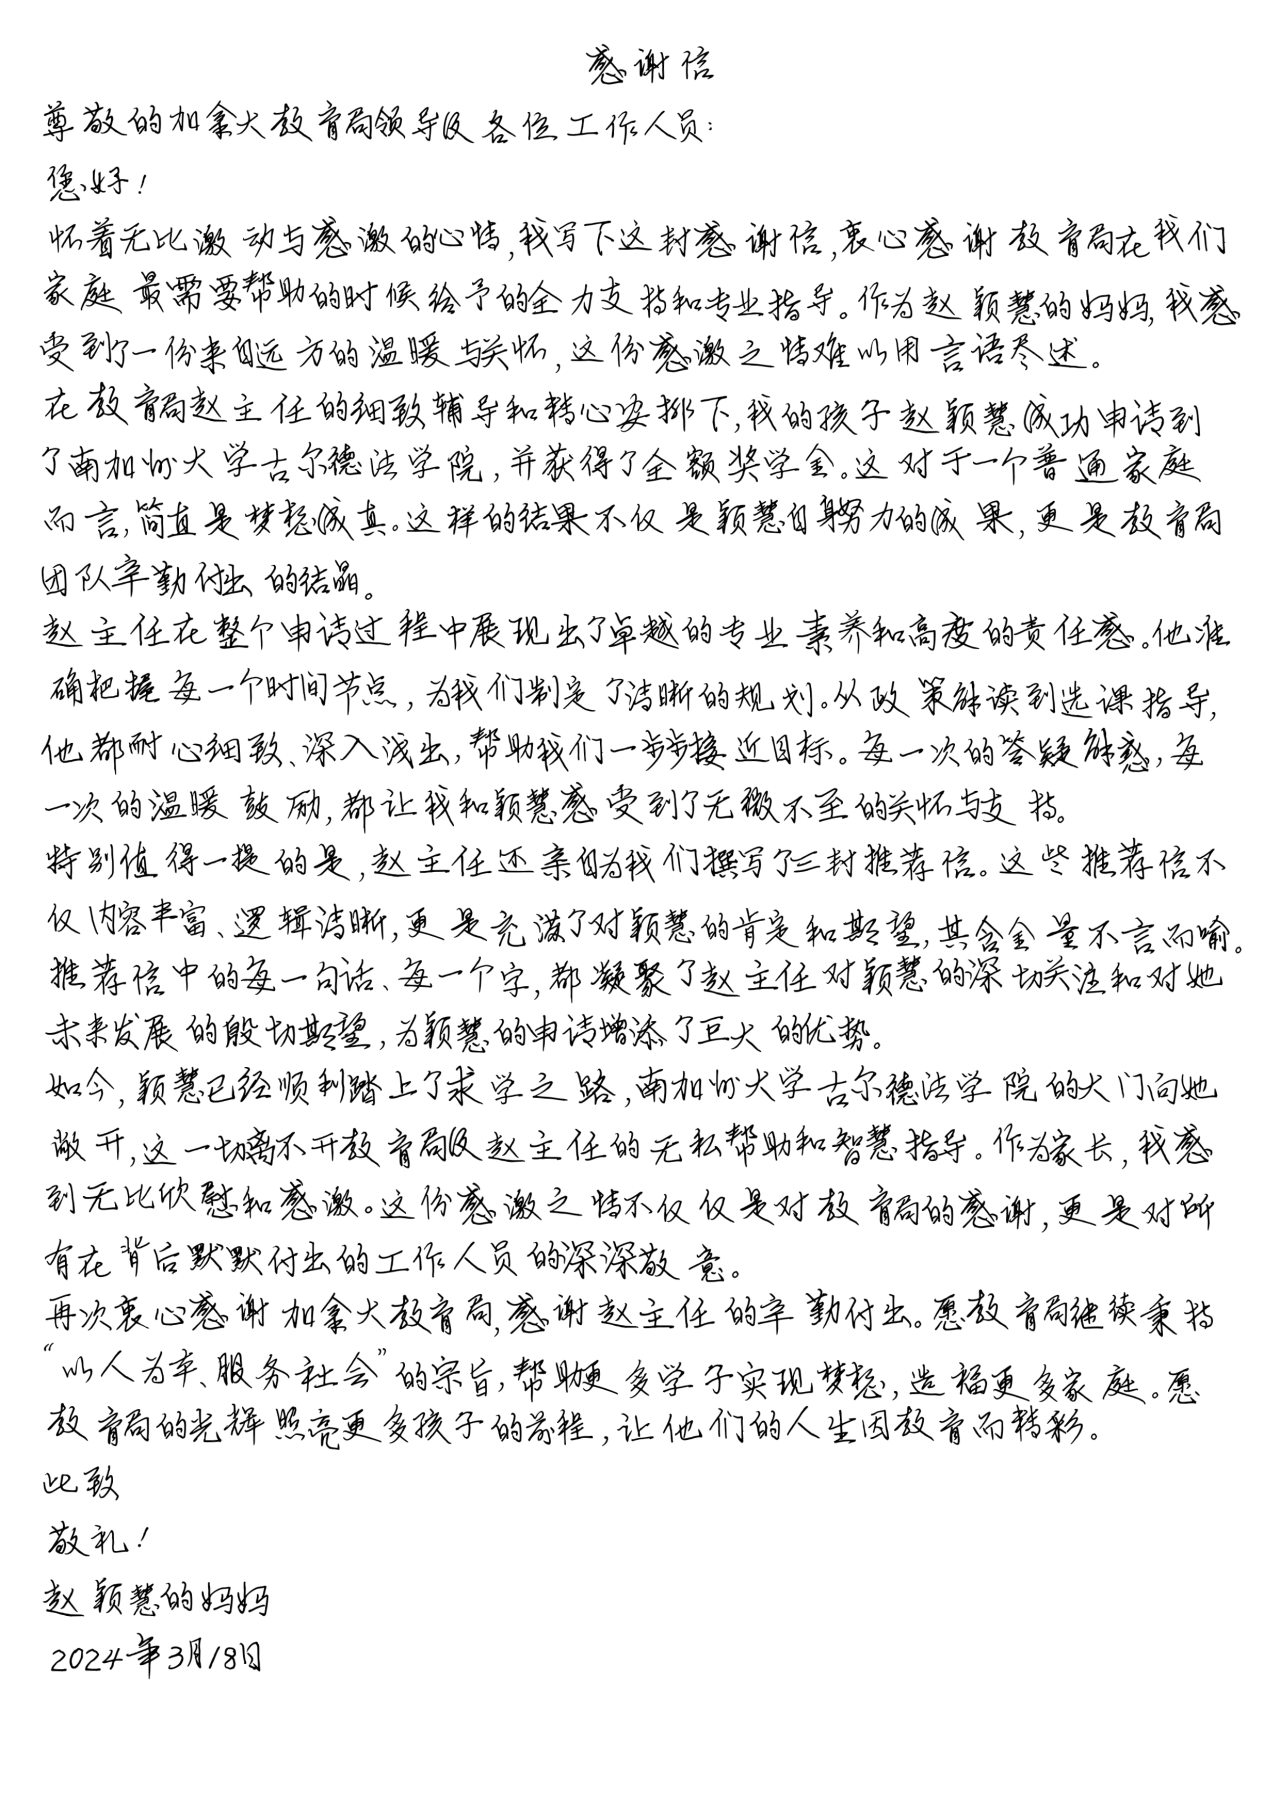 感谢信
尊敬的加拿大教育局领导及各位工作人员：
您好！
怀着无比激动与感激的心情，我写下这封感谢信，衷心感谢教育局在我们
家庭最需要帮助的时候给予的全力支持和专业指导。作为赵颖慧的妈妈，我感
受到了一份来自远方的温暖与关怀，这份感激之情难以用言语尽述。
在教育局赵主任的细致辅导和精心安排下，我的孩子赵颖慧成功申请到
了南加州大学古尔德法学院，并获得了全额奖学金。这对于一个普通家庭
而言，简直是梦想成真。这样的结果不仅是颖慧自身努力的成果，更是教育局
团队辛勤付出的结晶。
赵主任在整个申请过程中展现出了卓越的专业素养和高度的责任感。他准
确把握每一个时间节点，为我们制定了清晰的规划。从政策解读到选课指导，
他都耐心细致、深入浅出，帮助我们一步步接近目标。每一次的答疑解惑，每
一次的温暖鼓励，都让我和颖慧感受到了无微不至的关怀与支持。
特别值得一提的是，赵主任还亲自为我们撰写了三封推荐信。这些推荐信不
仅内容丰富、逻辑清晰，更是充满了对颖慧的肯定和期望，其含金量不言而喻。
推荐信中的每一句话、每一个字，都凝聚了赵主任对颖慧的深切关注和对她
未来发展的殷切期望，为颖慧的申请增添了巨大的优势。
如今，颖慧已经顺利踏上了求学之路，南加州大学古尔德法学院的大门向她
敞开，这一切离不开教育局及赵主任的无私帮助和智慧指导。作为家长，我感
到无比欣慰和感激。这份感激之情不仅仅是对教育局的感谢，更是对所
有在背后默默付出的工作人员的深深敬意。
再次衷心感谢加拿大教育局，感谢赵主任的辛勤付出。愿教育局继续秉持
“以人为本、服务社会”的宗旨，帮助更多学子实现梦想，造福更多家庭。愿
教育局的光辉照亮更多孩子的前程，让他们的人生因教育而精彩。
此致
敬礼！
赵颖慧的妈妈
2024年3月18日